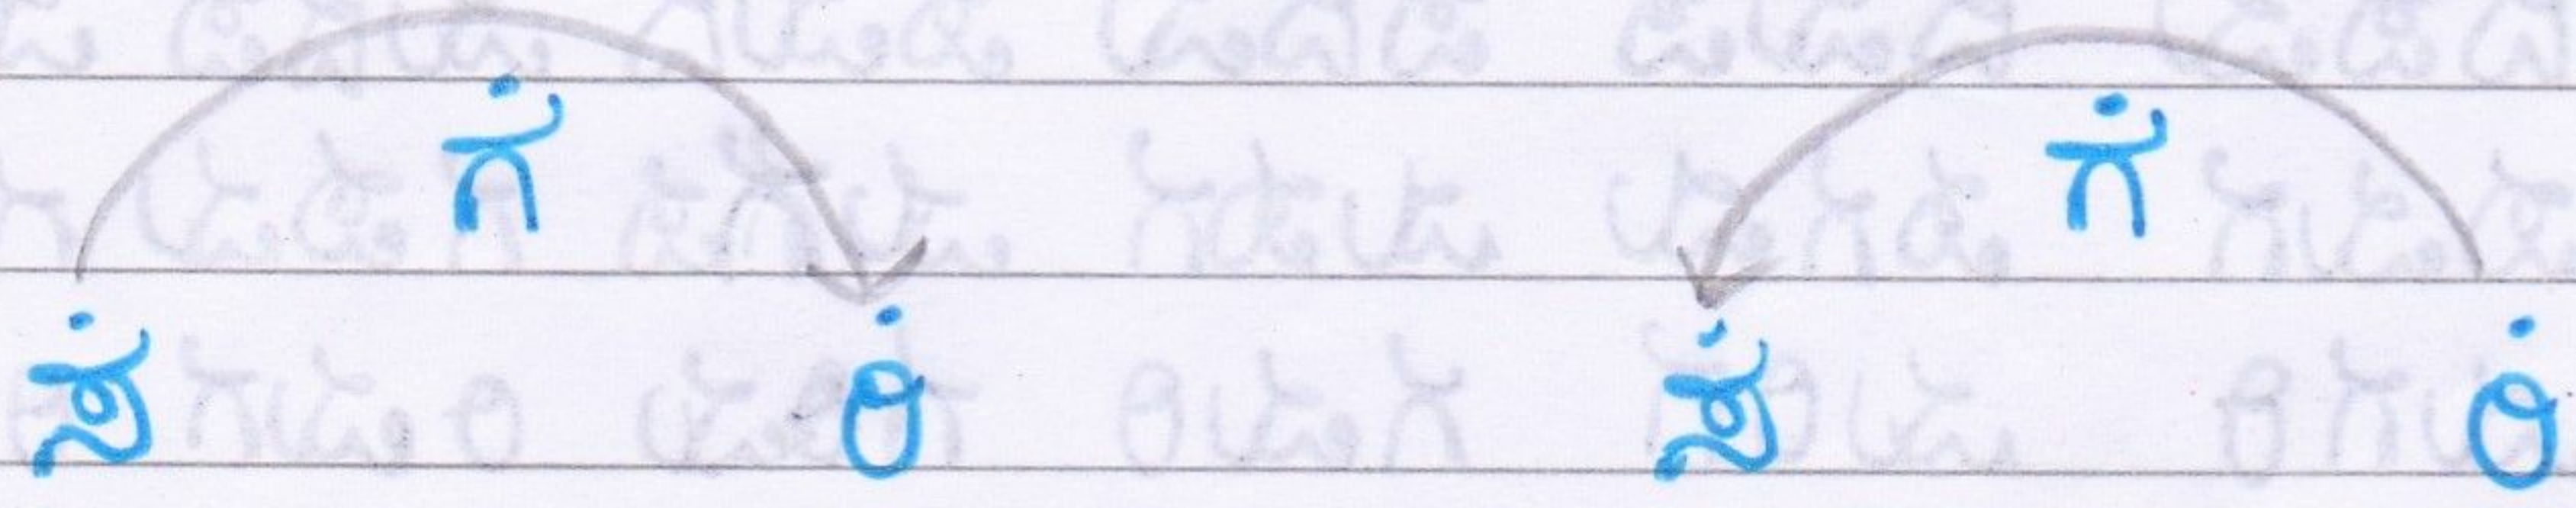 ಗ̇ ಗ̇
ಸ̇ ರಿ̇ ಸ̇ ರಿ̇